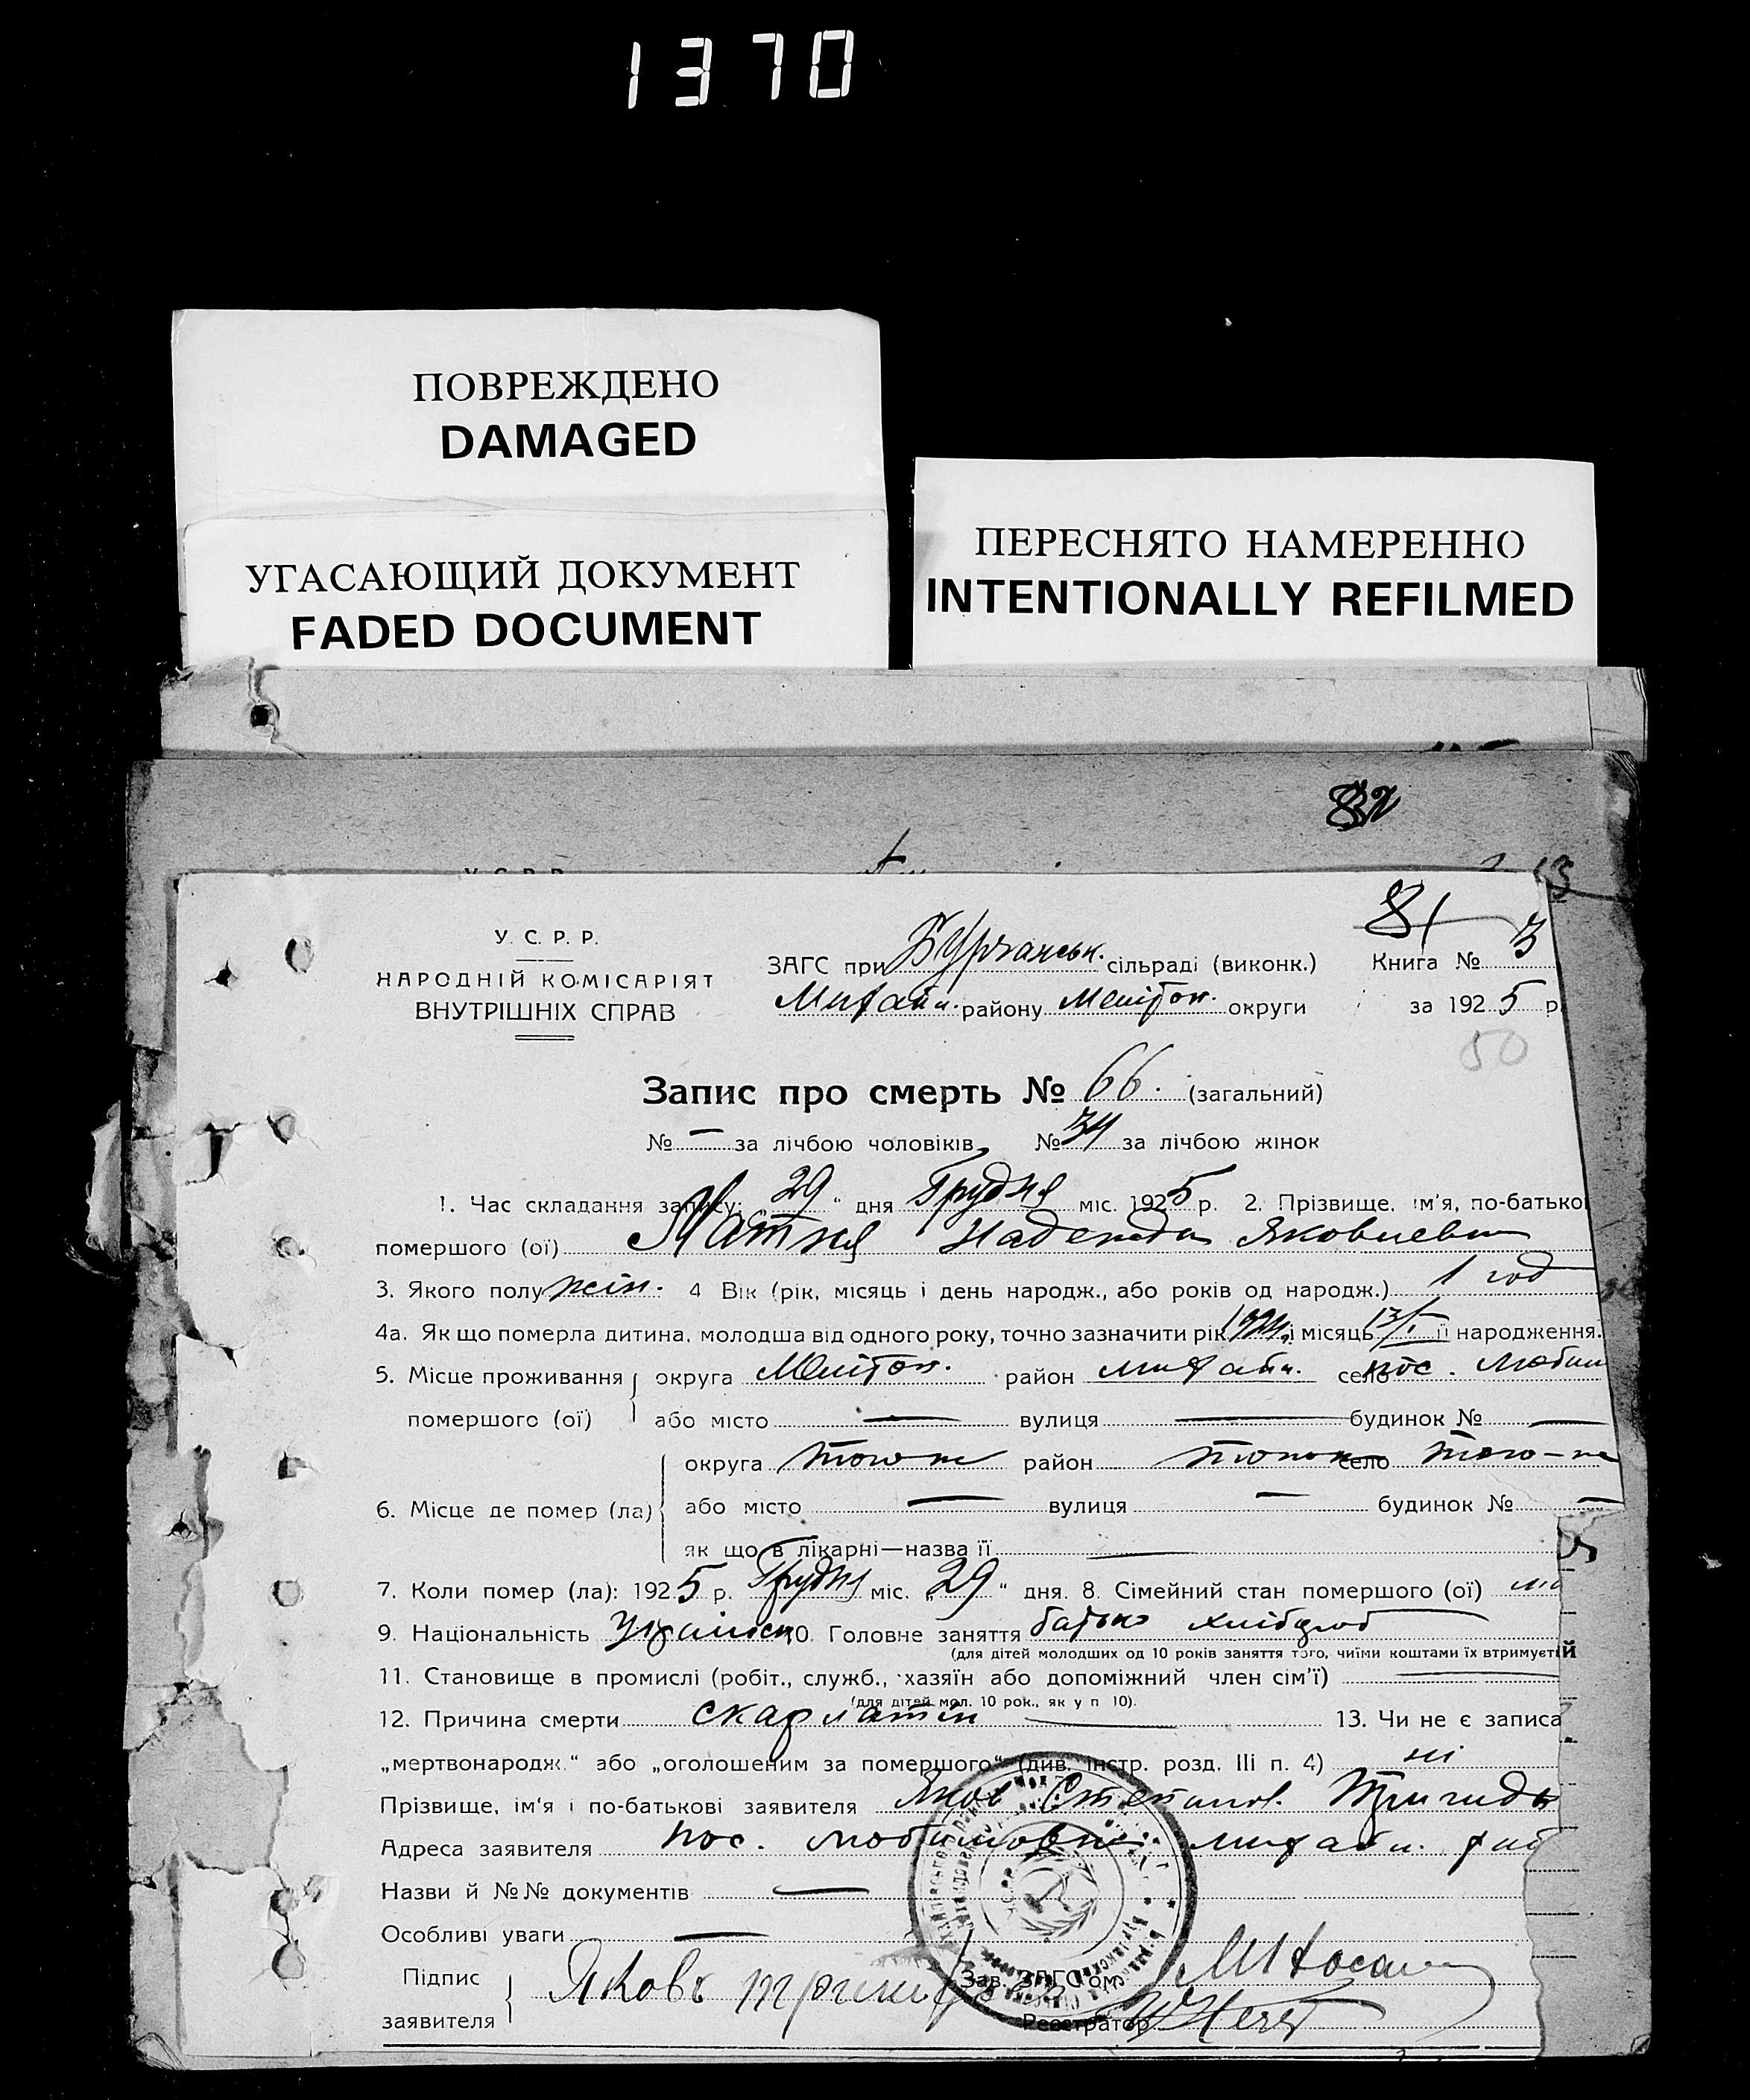 1370
ПОВРЕЖДЕНО
DAMAGED
УГАСАЮЩИЙ ДОКУМЕНТ
FADED DOCUMENT
ПЕРЕСНЯТО НАМЕРЕННО
INTENTIONALLY REFILMED
82
81
У. С. Р. Р.
НАРОДНІЙ КОМІСАРІЯТ
ВНУТРІШНІХ СПРАВ
ЗАГС при Бурчанськ. сільраді (виконк.) Книга № 3
Михайл. району Меліtоп. округи за 1925 р.
50
Запис про смерть № 66. (загальний)
№ — за лічбою чоловіків № 34 за лічбою жінок
1. Час складання запису: 29 " дня Грудня міс. 1925 р. 2. Прізвище, ім'я, по-батькові
помершого (ої) Надежда Яковлевна
3. Якого полу жін. 4 Вік (рік, місяць і день народж., або років од народж.) 1 год
4а. Як що померла дитина, молодша від одного року, точно зазначити рік 1924 і місяць її народження.
5. Місце проживання округа Меліtоп. район Михайл. село пос. Любим
помершого (ої) або місто — вулиця — будинок № —
округа тоже район тоже село того-же
6. Місце де помер (ла) або місто — вулиця — будинок № —
як що в лікарні—назва її —
7. Коли помер (ла): 1925 р. Грудня міс. „29" дня. 8. Сімейний стан помершого (ої)
9. Національність Україн. 10. Головне заняття батько хлібороб
(для дітей молодших од 10 років заняття того, чиїми коштами їх втримується)
11. Становище в промислі (робіт., служб., хазяїн або допоміжний член сім'ї) —
(для дітей мол. 10 рок., як у п 10).
12. Причина смерти скарлатін — 13. Чи не є записа
„мертвонародж." або „оголошеним за помершого" (див. інстр. розд. III п. 4) ні
Прізвище, ім'я і по-батькові заявителя Яков Степанов.
Адреса заявителя пос. Любимовка Михайл. рай
Назви й №№ документів —
Особливі уваги —
Підпис
заявителя Яковъ
Зав. ЗАГС'ом
Реєстратор